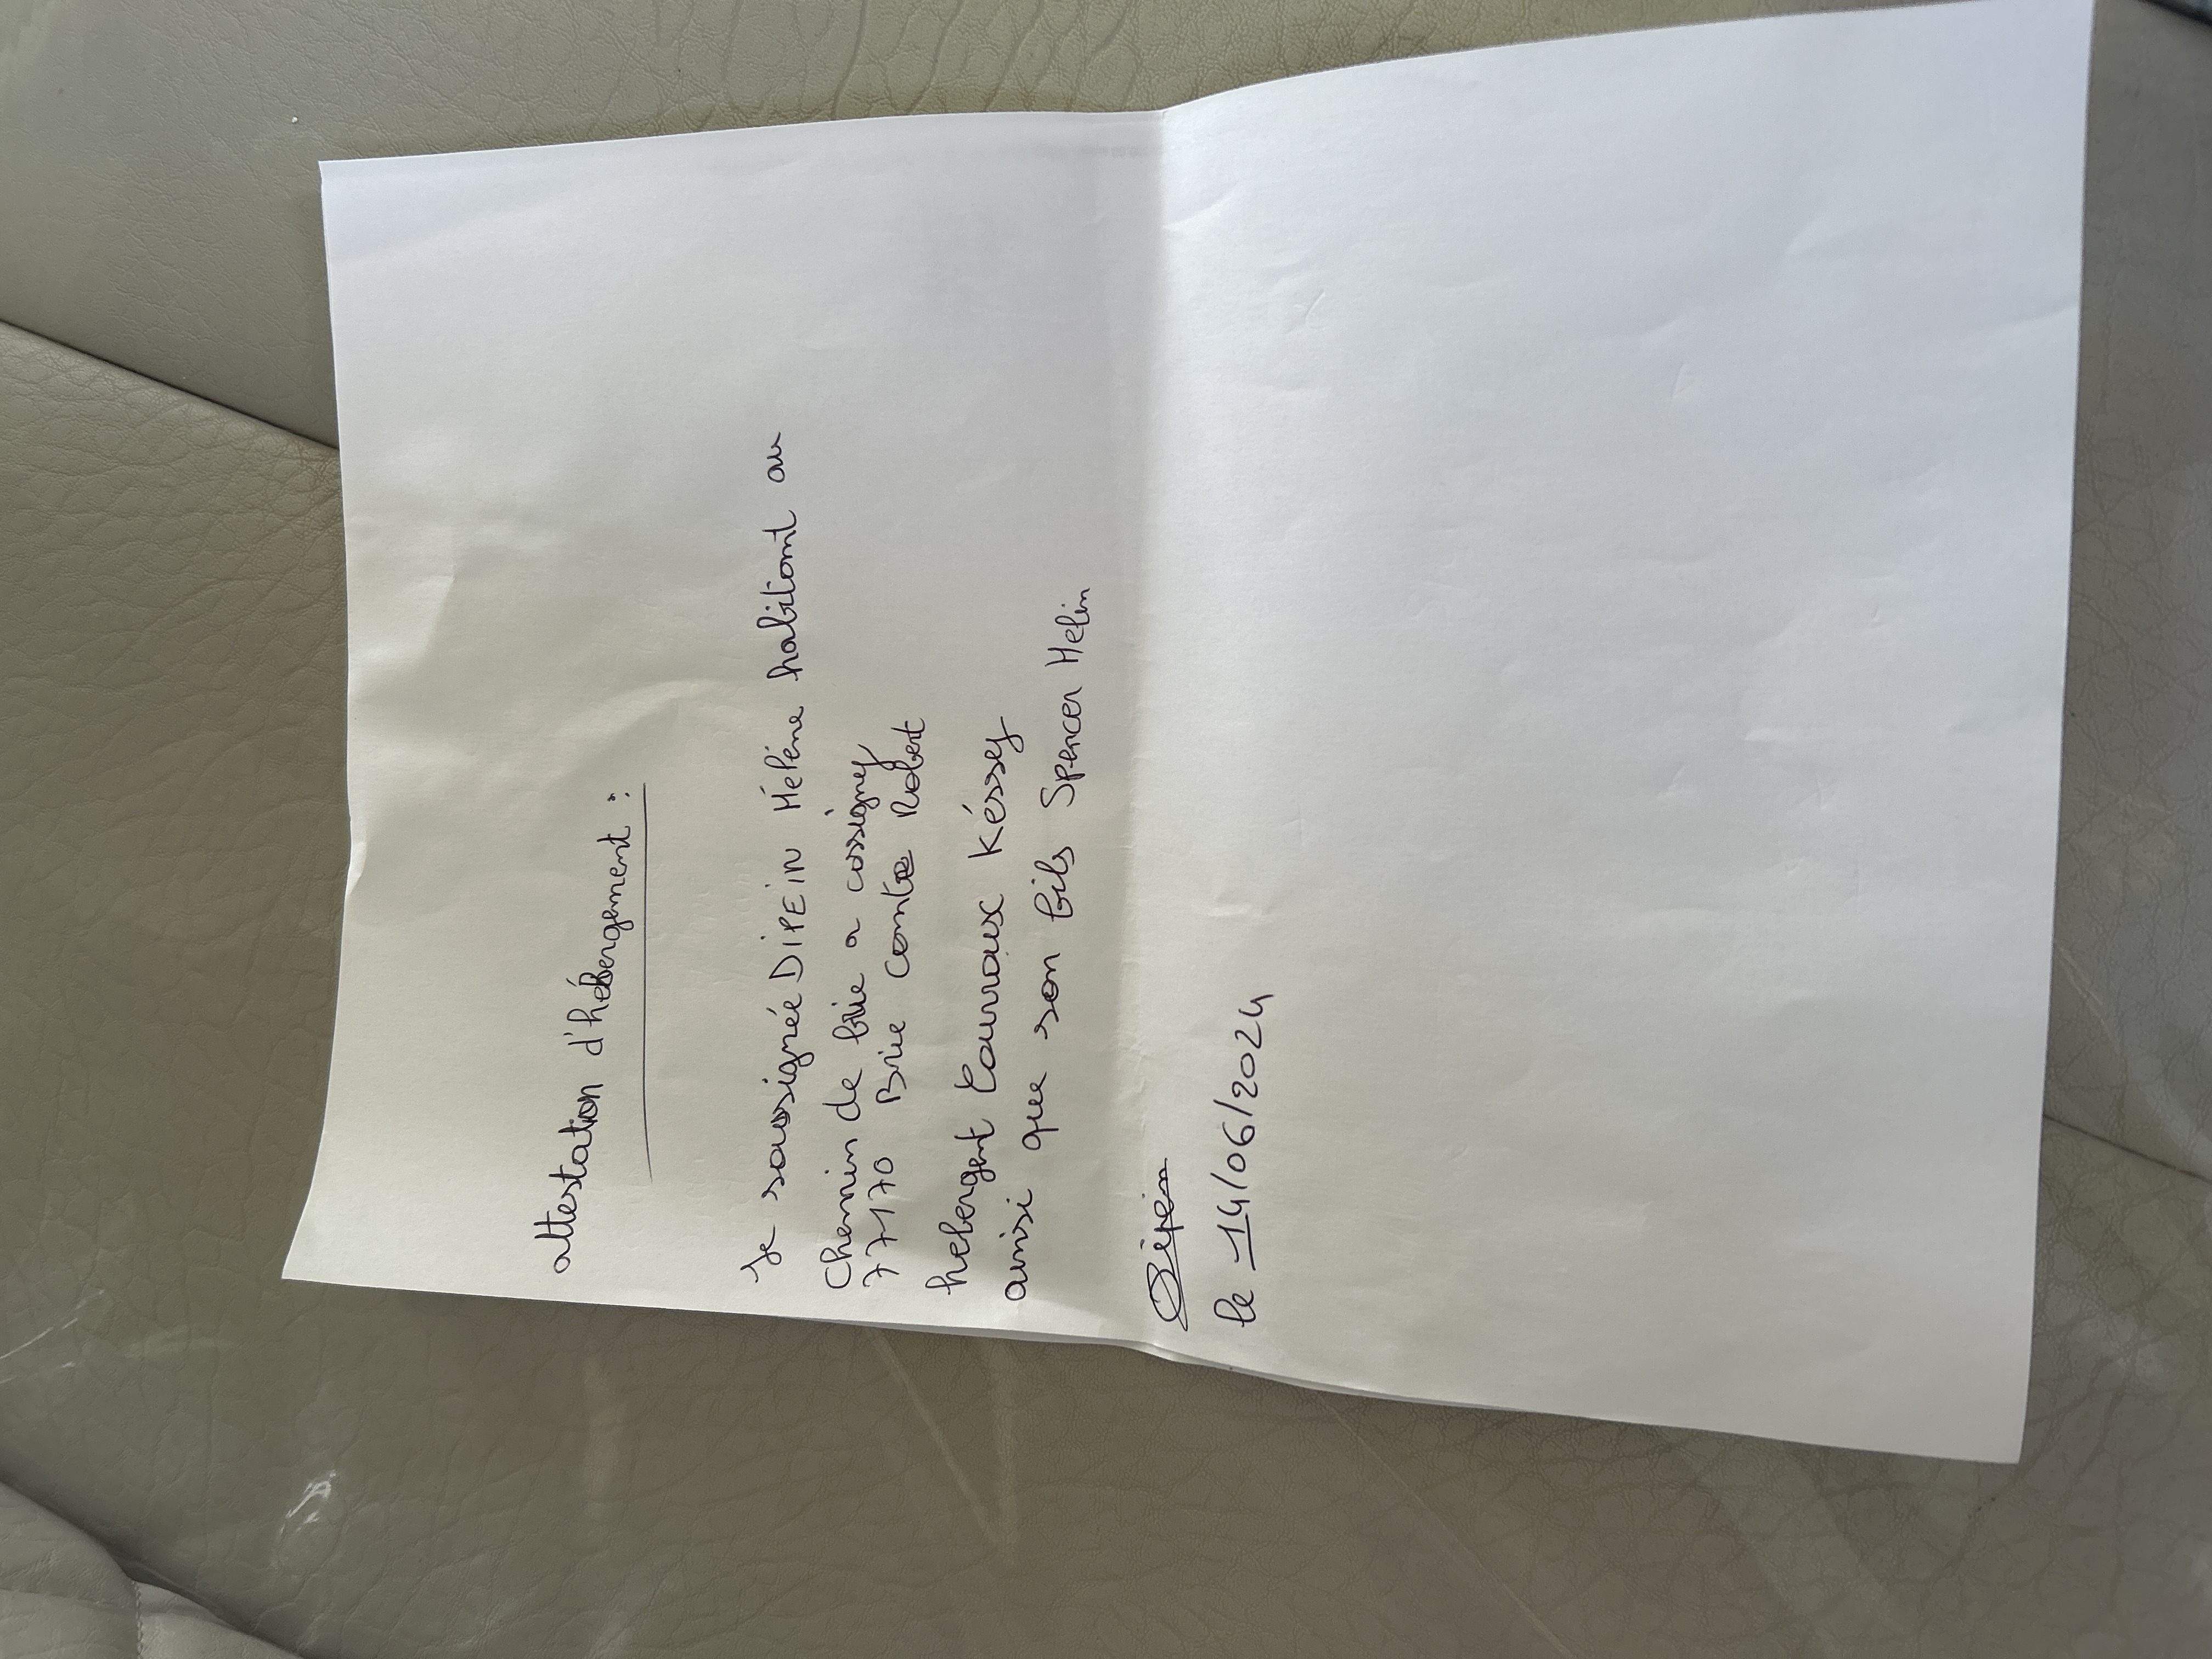 attestation d'hébergement :
Je soussignée DiPEiN Hélène habitant au
Chemin de brie a cossigny
77170 Brie comte Robert
hebergent Courroux Késsy
ainsi que son fils Spencer Helin
Dipein
le 14/06/2024